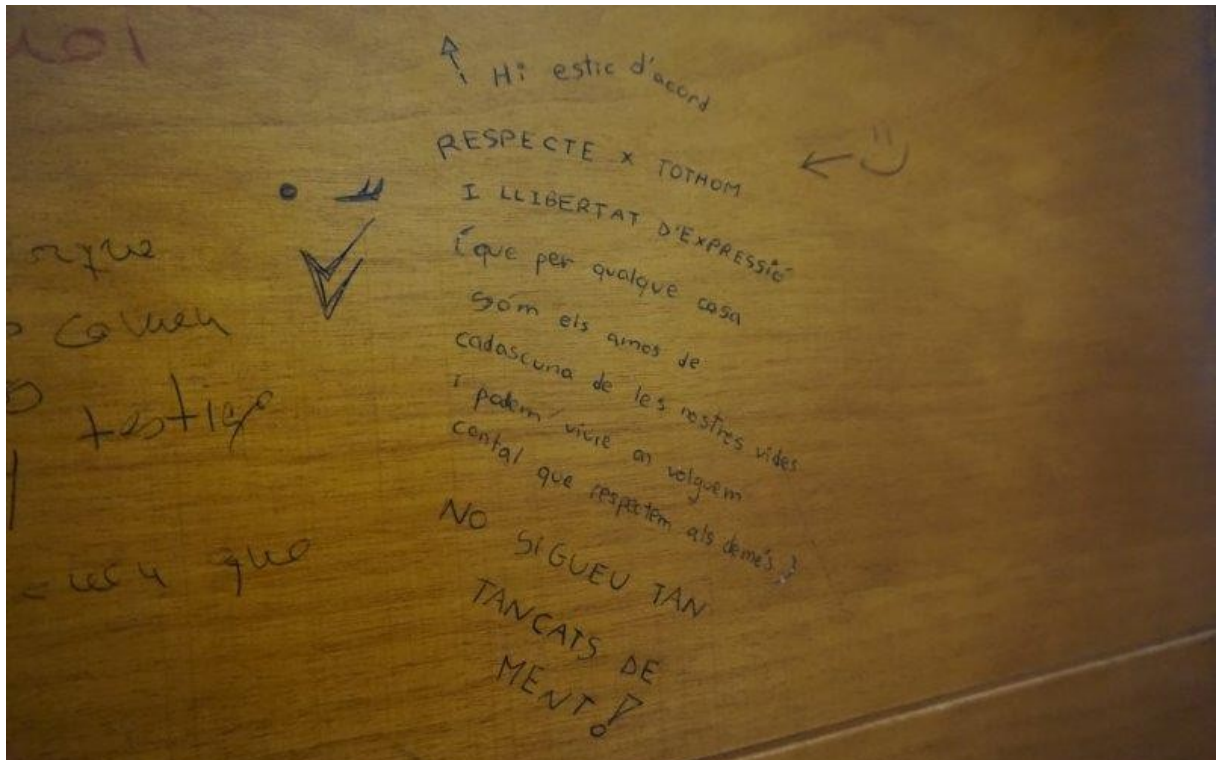 Hi estic d'acord
RESPECTE X TOTHOM
I LLIBERTAT D'EXPRESSIÓ
que per qualque cosa
som els amos de
cadascuna de les nostres vides
i podem viure on volguem
contal que respectem als demés
NO SIGUEU TAN
TANCATS DE
MENT!
testigo
que